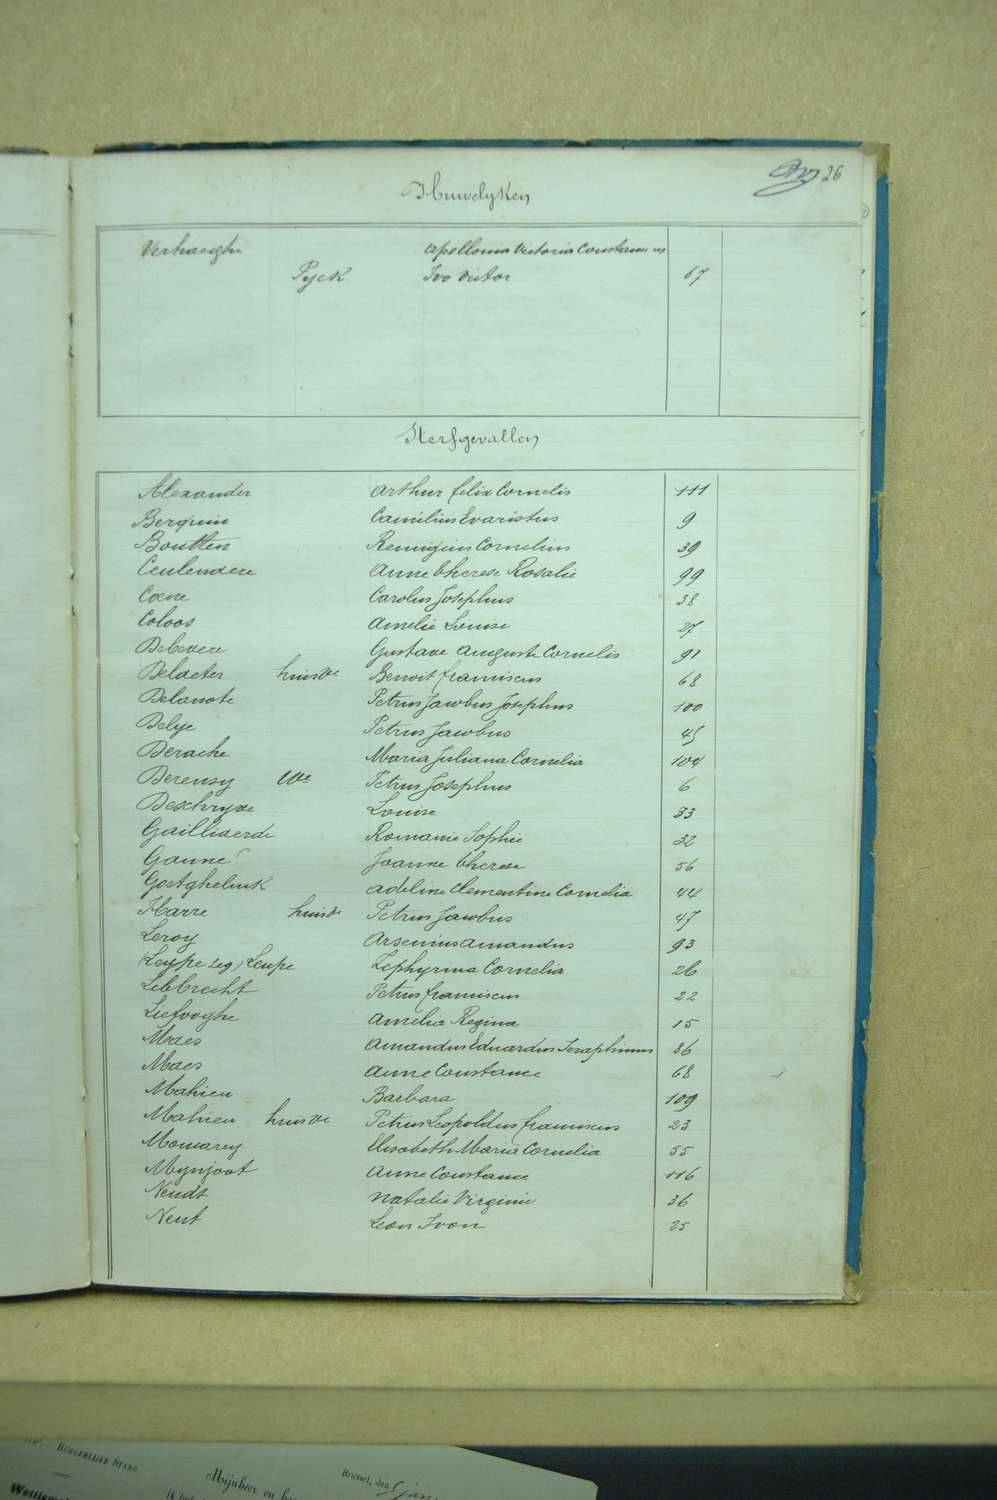 26
Huwelyken
Verhaeghe Apollonia Victoria Constance en
Pyck Ivo Victor 67
Sterfgevallen
Alexander Arthur Felix Cornelis 111
Berquin Camilius Evaristus 9
Boutten Remigius Cornelius 39
Ceulendere Anne Therese Rosalie 99
Coene Carolus Josephus 38
Coloos Amelie Louise 27
Debevere Gustave Auguste Cornelis 91
Delaeter huisve Benoit Franciscus 68
Delanote Petrus Jacobus Josephus 100
Delye Petrus Jacobus 45
Derache Maria Juliana Cornelia 104
Derensy We Petrus Josephus 6
Deschryve Louise 33
Gailliaerde Romanie Sophie 32
Ganne Joanne Therese 56
Goetghelink Adeline Clementine Cornelia 44
Harre huisve Petrus Jacobus 47
Leroy Arsenius Amandus 93
(Leype zeg) Leupe Zephyrina Cornelia 26
Libbrecht Petrus Franciscus 22
Liefooghe Amelia Regina 15
Maes Amandus Eduardus Seraphinus 86
Maes Anne Constance 68
Mahieu Barbara 109
Mahieu huisve Petrus Leopoldus Franciscus 23
Momarey Elisabeth Maria Cornelia 55
Mynjoot Anne Constance 116
Neudt Natalie Virginie 36
Neut Leon Ivon 25
Burgerlijke Stand
Brussel, den 5 jan
Mijnheer en